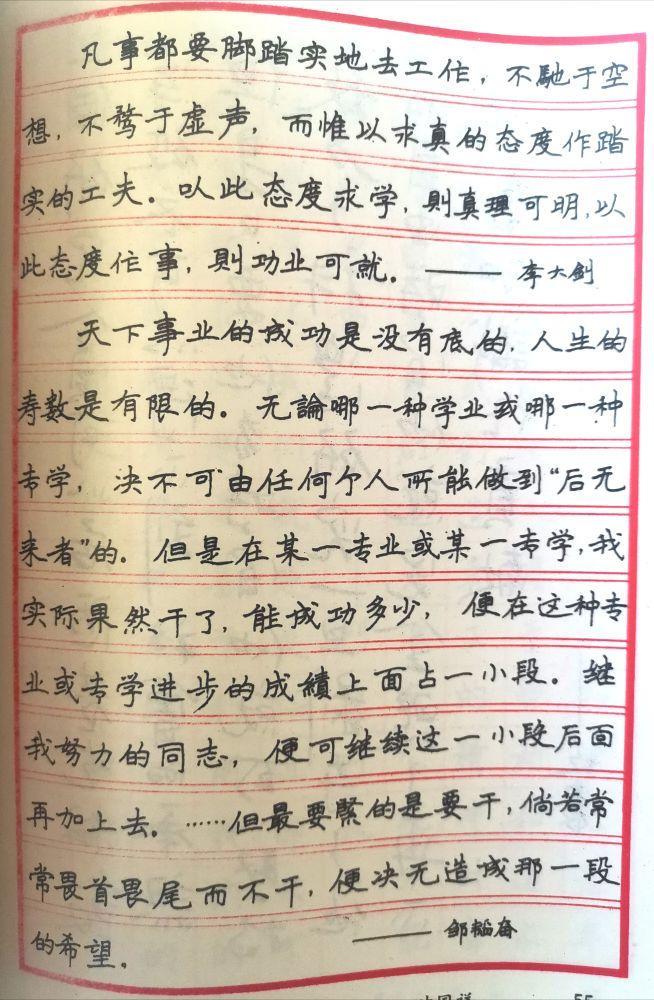 凡事都要脚踏实地去工作，不馳于空
想，不骛于虚声，而惟以求真的态度作踏
实的工夫。以此态度求学，則真理可明，以
此态度作事，則功业可就。——李大剑
天下事业的成功是没有底的，人生的
寿数是有限的。无論哪一种学业或哪一种
专学，决不可由任何个人所能做到“后无
来者”的。但是在某一专业或某一专学，我
实际果然干了，能成功多少，便在这种专
业或专学进步的成績上面占一小段。继
我努力的同志，便可继续这一小段后面
再加上去。……但最要緊的是要干，倘若常
常畏首畏尾而不干，便决无造成那一段
的希望。——邹韬奋
55